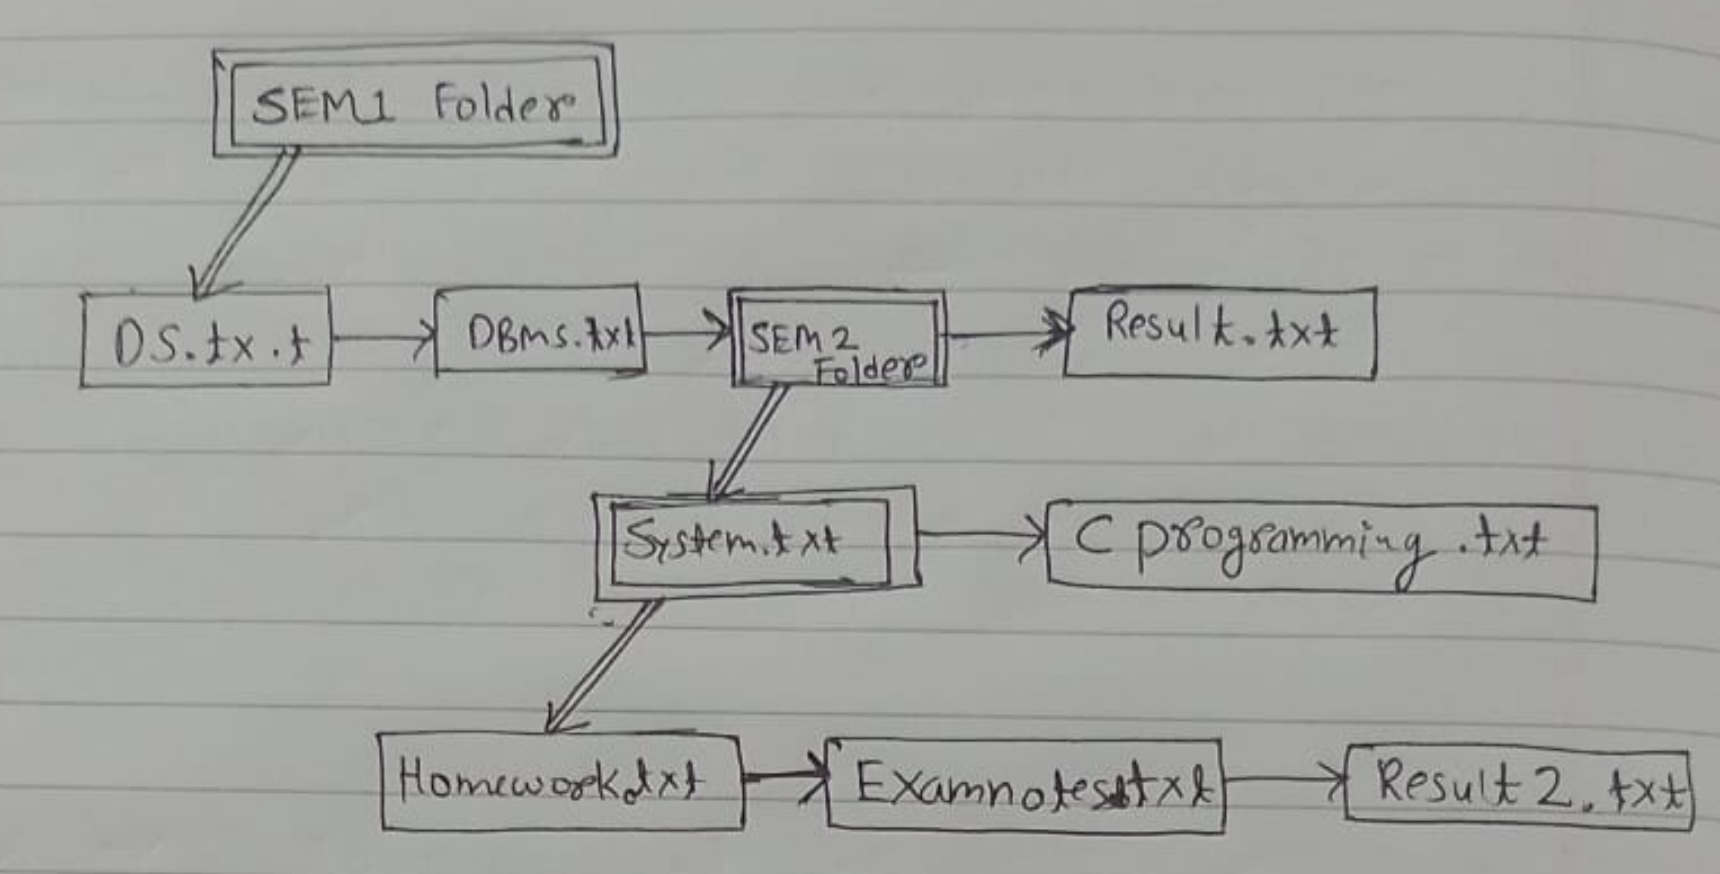 SEM1 Folder
DS.tx.t
DBms.txt
SEM 2
Folder
Result.txt
System.txt
C programming .txt
Homework.txt
Examnotes.txt
Result 2. txt